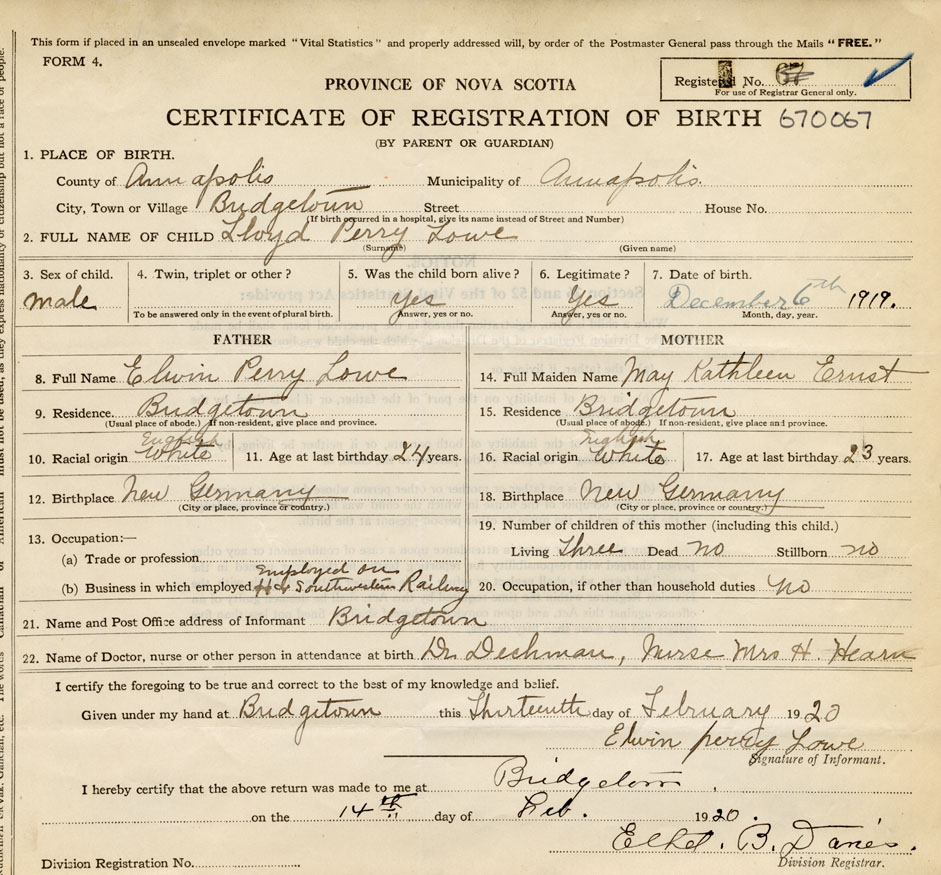 This form if placed in an unsealed envelope marked "Vital Statistics" and properly addressed will, by order of the Postmaster General pass through the Mails "FREE."
FORM 4.
Registered No. 67
For use of Registrar General only.
PROVINCE OF NOVA SCOTIA
CERTIFICATE OF REGISTRATION OF BIRTH 670067
(BY PARENT OR GUARDIAN)
1. PLACE OF BIRTH.
County of Annapolis Municipality of Annapolis.
City, Town or Village Bridgetown Street House No.
(If birth occurred in a hospital, give its name instead of Street and Number)
2. FULL NAME OF CHILD Lloyd Perry Lowe
(Surname) (Given name)
3. Sex of child. 4. Twin, triplet or other? 5. Was the child born alive? 6. Legitimate? 7. Date of birth.
male Yes Yes December 6th 1919.
To be answered only in the event of plural birth. Answer, yes or no. Answer, yes or no. Month, day, year.
FATHER MOTHER
8. Full Name Elwin Perry Lowe 14. Full Maiden Name May Kathleen Ernst
9. Residence. Bridgetown 15. Residence Bridgetown
(Usual place of abode.) If non-resident, give place and province. (Usual place of abode.) If non-resident, give place and province.
English English
10. Racial origin White 11. Age at last birthday 24 years. 16. Racial origin White 17. Age at last birthday 23 years.
12. Birthplace New Germany 18. Birthplace New Germany
(City or place, province or country.) (City or place, province or country.)
13. Occupation:— 19. Number of children of this mother (including this child.)
(a) Trade or profession Living Three Dead no Stillborn no
Employed on
(b) Business in which employed H & Southwestern Railway 20. Occupation, if other than household duties No
21. Name and Post Office address of Informant Bridgetown
22. Name of Doctor, nurse or other person in attendance at birth Dr. Dechman, Nurse Mrs H. Hearn
I certify the foregoing to be true and correct to the best of my knowledge and belief.
Given under my hand at Bridgetown this Thirteenth day of February 1920
Elwin perry Lowe
Signature of Informant.
I hereby certify that the above return was made to me at Bridgetown
on the 14th day of Feb. 1920.
Ethel. B. Davies.
Division Registrar.
Division Registration No.